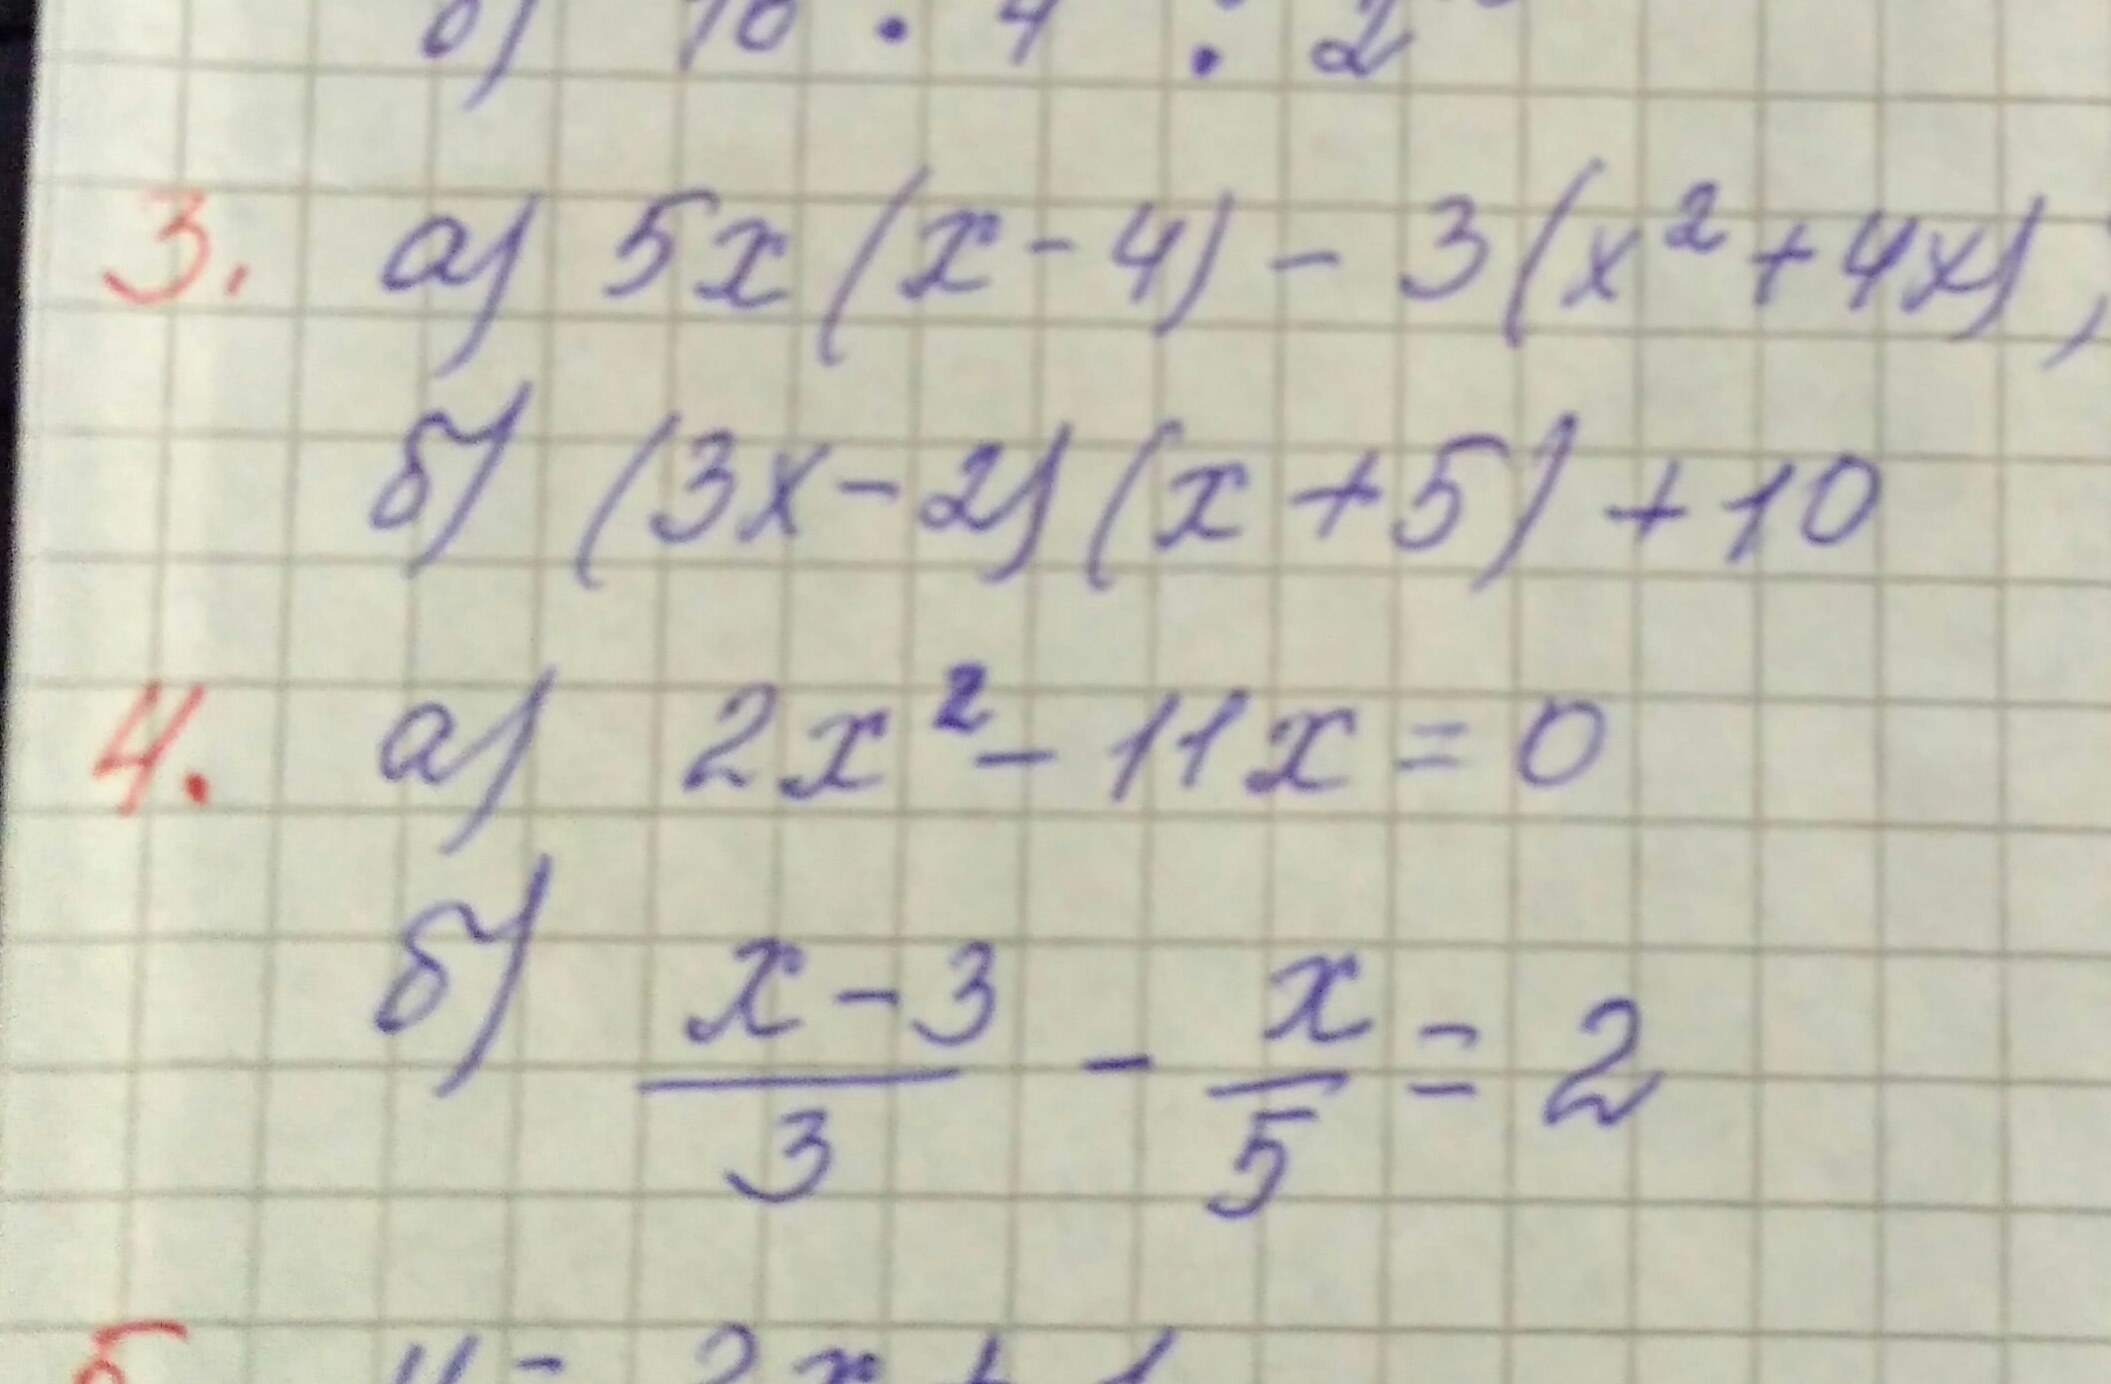 3. а) 5x(x-4) - 3(x²+4x);
б) (3x-2)(x+5)+10
4. а) 2x² - 11x = 0
б) (x-3)/3 - x/5 = 2